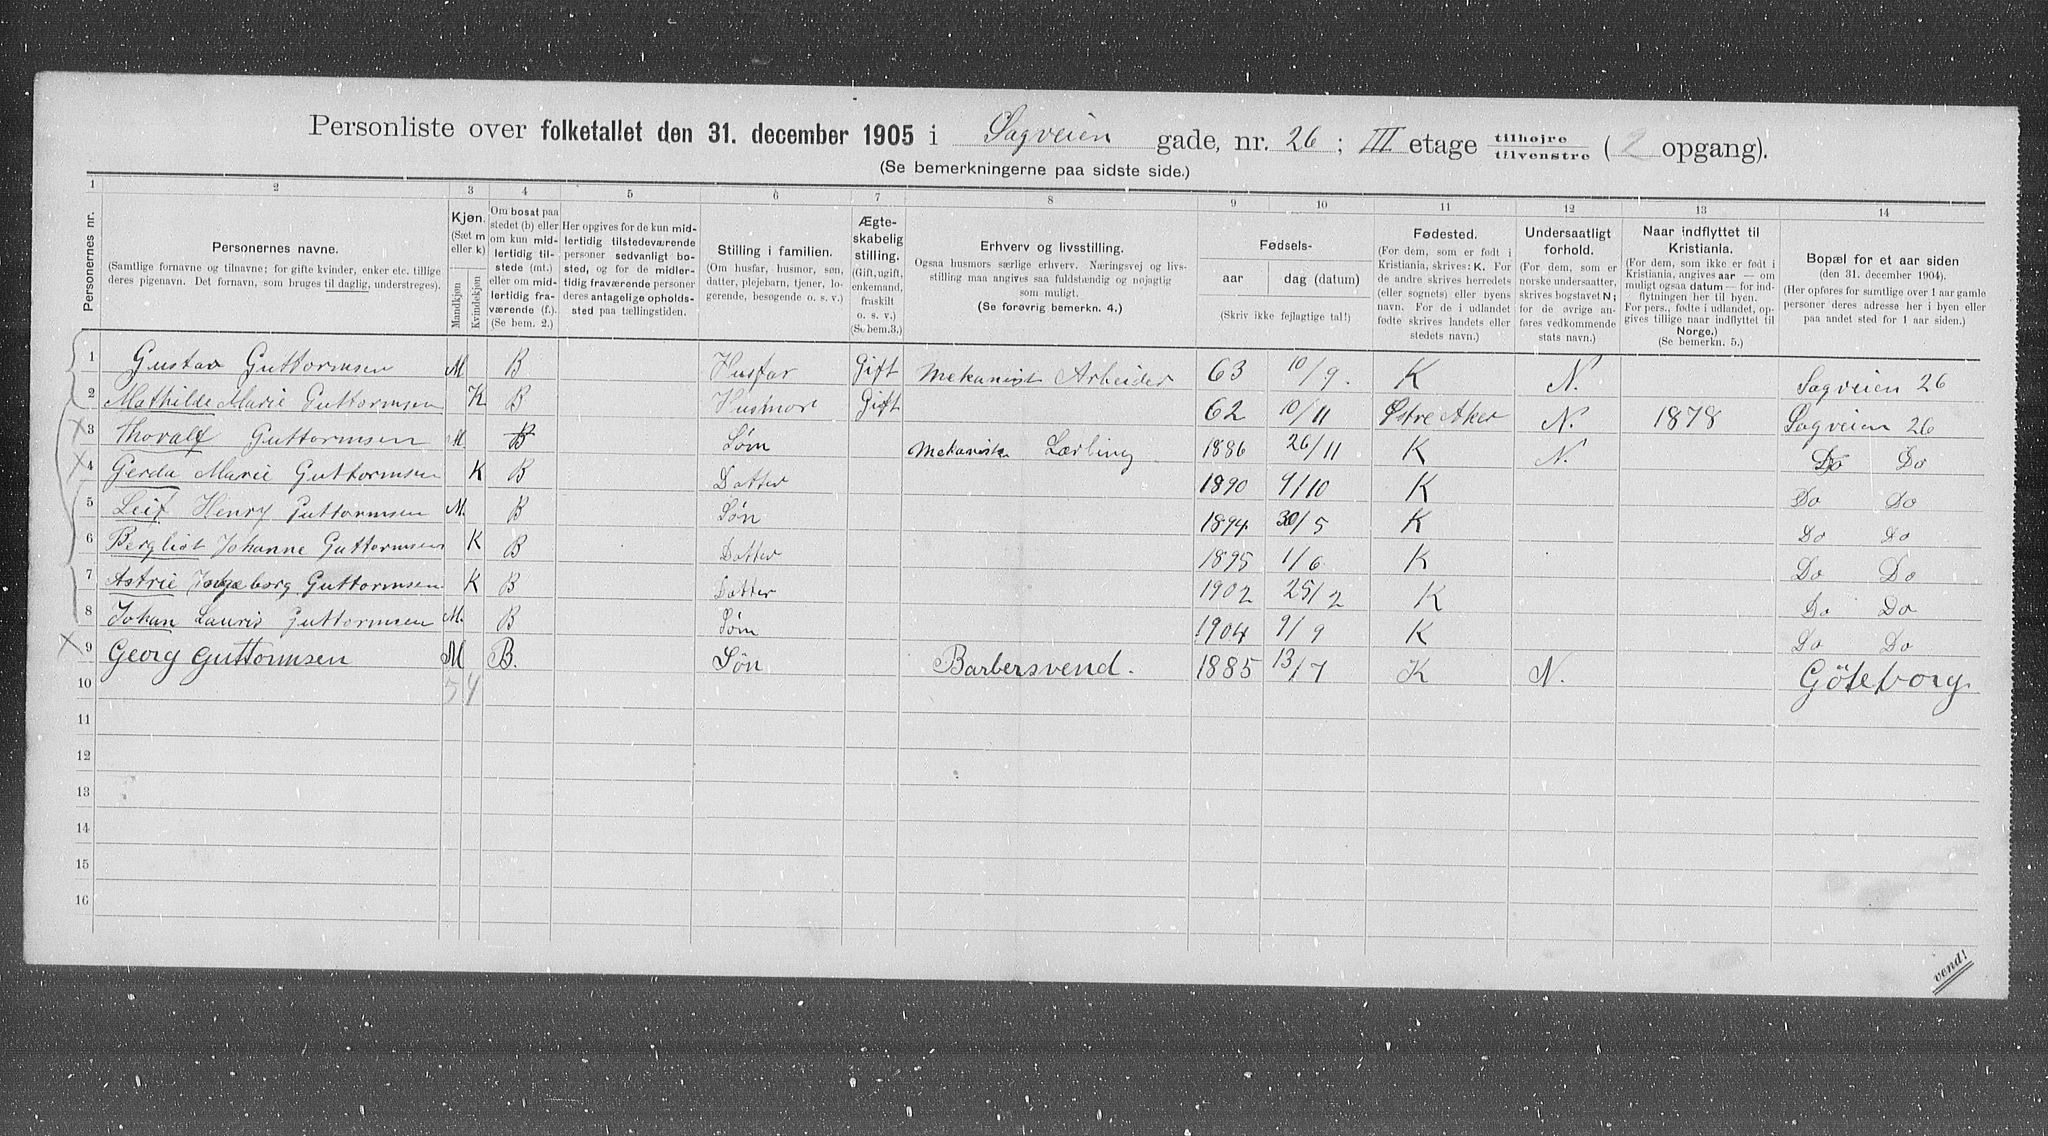 Personliste over folketallet den 31. december 1905 i Sagveien gade, nr. 26; III etage tilhøjre tilvenstre (2 opgang).
(Se bemerkningerne paa sidste side.)
1 2 3 4 5 6 7 8 9 10 11 12 13 14
Personernes nr.
Personernes navne.
(Samtlige fornavne og tilnavne; for gifte kvinder, enker etc. tillige deres pigenavn. Det fornavn, som bruges til daglig, understreges).
Kjøn. (Sæt m eller k)
Mandkjøn Kvindekjøn
Om bosat paa stedet (b) eller om kun midlertidig tilstede (mt.) eller om midlertidig fraværende (f.). (Se bem. 2.)
Her opgives for de kun midlertidig tilstedeværende personer sedvanligt bosted, og for de midlertidig fraværende personer deres antagelige opholdssted paa tællingstiden.
Stilling i familien.
(Om husfar, husmor, søn, datter, plejebarn, tjener, logerende, besøgende o. s. v.)
Ægteskabelig stilling.
(Gift, ugift, enkemand, fraskilt o. s. v.) (Se bem.3.)
Erhverv og livsstilling.
Ogsaa husmors særlige erhverv. Næringsvej og livsstilling maa angives saa fuldstændig og nøjagtig som muligt.
(Se forøvrig bemerkn. 4.)
Fødsels-
aar dag (datum)
(Skriv ikke fejlagtige tal!)
Fødested.
(For dem, som er født i Kristiania, skrives: K. For de andre skrives herredets (eller sognets) eller byens navn. For de i udlandet fødte skrives landets eller stedets navn.)
Undersaatligt forhold.
(For dem, som er norske undersaatter, skrives bogstavet N; for de øvrige anføres vedkommende stats navn.)
Naar indflyttet til Kristiania.
(For dem, som ikke er født i Kristiania, angives aar — om muligt ogsaa datum — for indflytningen her til byen. For pers., fødte i udlandet, opgives tillige naar indflyttet til Norge.)
(Se bemerkn. 5.)
Bopæl for et aar siden
(den 31. december 1904).
(Her opføres for samtlige over 1 aar gamle personer deres adresse her i byen eller paa andet sted for 1 aar siden.)
1 Gustav Guttormsen M B Husfar Gift Mekanisk Arbeider 63 10/9. K N. Sagveien 26
2 Mathilde Marie Guttormsen K B Husmor Gift 62 10/11 Østre Aker N. 1878 Sagveien 26
3 Thoralf Guttormsen M. B Søn Mekanisk Lærling 1886 26/11 K N. Do Do
4 Gerda Marie Guttormsen K B Datter 1890 9/10 K Do Do
5 Leif Henry Guttormsen M. B Søn 1894 30/5 K Do Do
6 Bergliot Johanne Guttormsen K B Datter 1895 1/6 K Do Do
7 Astrie Ingeborg Guttormsen K B Datter 1902 25/2 K Do Do
8 Johan Lauris Guttormsen M. B Søn 1904 9/9 K Do Do
9 Georg Guttormsen M B. Søn Barbersvend. 1885 13/7 K N. Göteborg
10 5 4
11
12
13
14
15
16
vend!